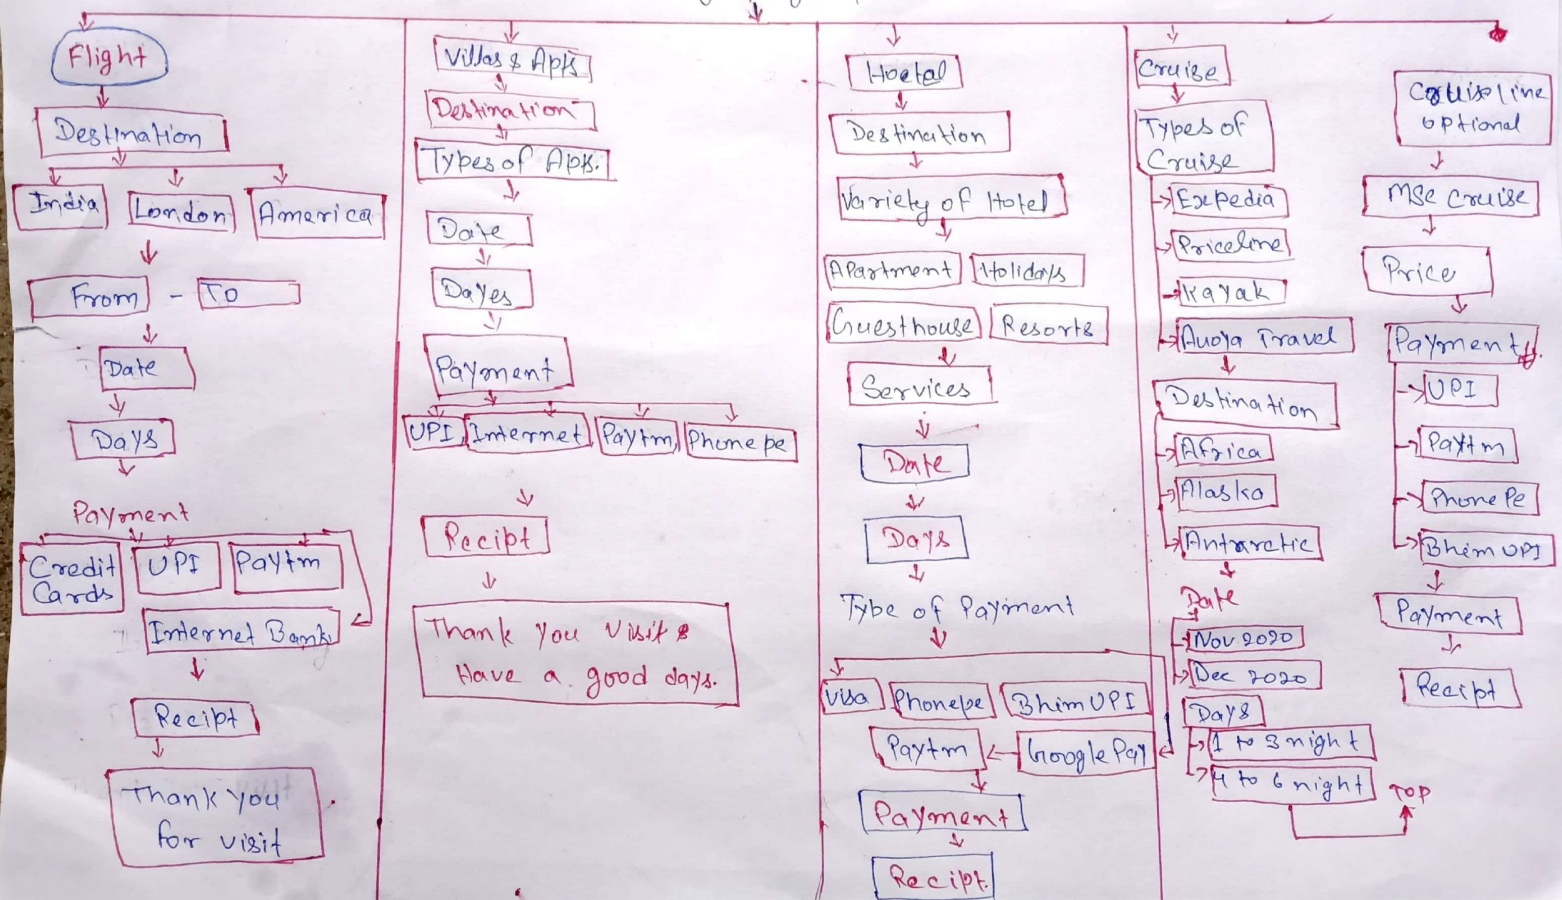 Flight
Destination
India
London
America
From - To
Date
Days
Payment
Credit
Cards
UPI
Paytm
Internet Bank
Recipt
Thank you
for visit
Villas & Apts
Destination
Types of Apts.
Date
Dayes
Payment
UPI
Internet
Paytm
Phonepe
Recipt
Thank you visit &
Have a good days.
Hoetal
Destination
Variety of Hotel
Apartment
Holidays
Guesthouse
Resorts
Services
Date
Days
Type of Payment
Visa
Phonepe
Bhim UPI
Paytm
Google Pay
Payment
Recipt.
Cruise
Types of
Cruise
Expedia
Priceline
Kayak
Avoya Travel
Destination
Africa
Alaska
Antarctic
Date
Nov 2020
Dec 2020
Days
1 to 3 night
4 to 6 night
TOP
Cruiseline
optional
MSC Cruise
Price
Payment
UPI
Paytm
PhonePe
Bhim UPI
Payment
Recipt